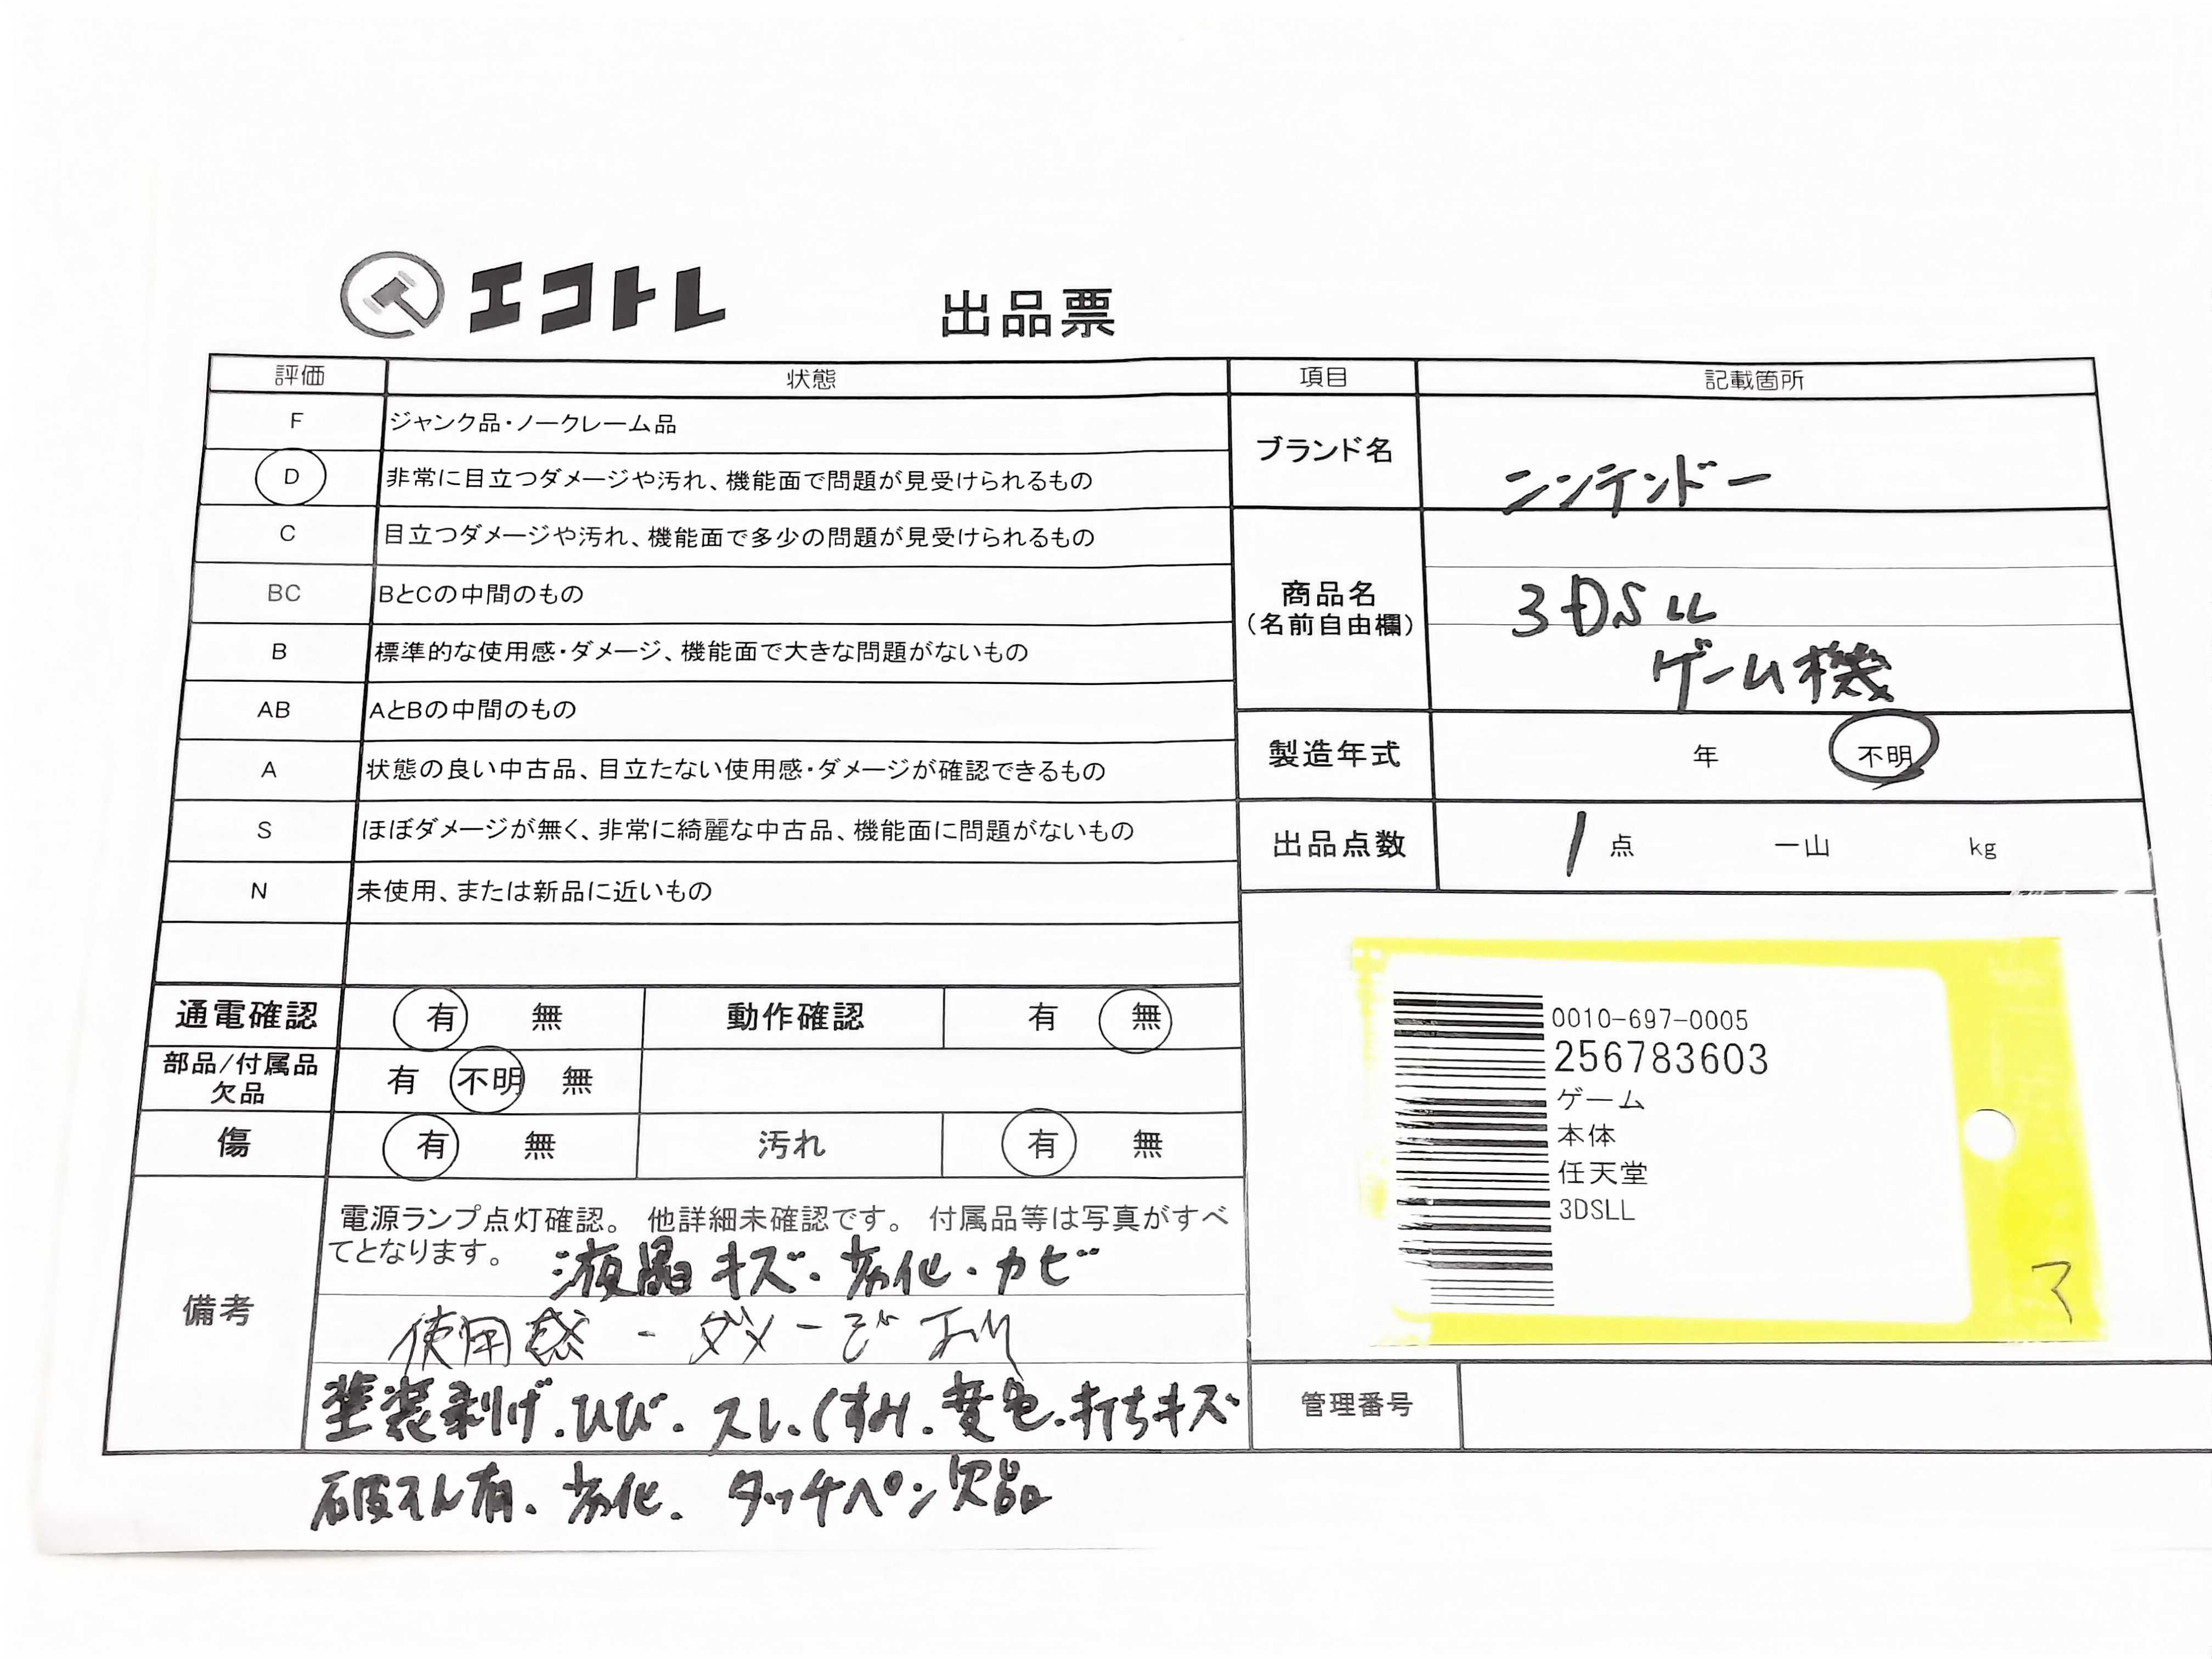 エコトレ
出品票
評価 状態
F ジャンク品・ノークレーム品
D 非常に目立つダメージや汚れ、機能面で問題が見受けられるもの
C 目立つダメージや汚れ、機能面で多少の問題が見受けられるもの
BC BとCの中間のもの
B 標準的な使用感・ダメージ、機能面で大きな問題がないもの
AB AとBの中間のもの
A 状態の良い中古品、目立たない使用感・ダメージが確認できるもの
S ほぼダメージが無く、非常に綺麗な中古品、機能面に問題がないもの
N 未使用、または新品に近いもの
通電確認 有 無 動作確認 有 無
部品/付属品
欠品
有 不明 無
傷 有 無 汚れ 有 無
備考
電源ランプ点灯確認。 他詳細未確認です。 付属品等は写真がすべ
てとなります。 液晶キズ・劣化・カビ
使用感・ダメージあり
塗装剥げ.ひび.スレ.くすみ.変色.打ちキズ
破そん有.劣化.タッチペン欠品
項目 記載箇所
ブランド名 ニンテンドー
商品名
(名前自由欄)
3DSLL
ゲーム機
製造年式 年 不明
出品点数 1 点 一山 kg
0010-697-0005
256783603
ゲーム
本体
任天堂
3DSLL
管理番号